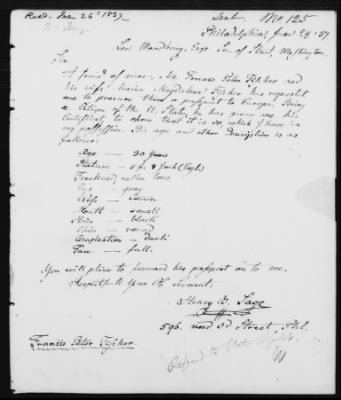 Sent No 125
Philadelphia, Mar 24. 37
Levi Woodbury, Esqr Sec. of Washington.
Sir,
A friend of mine, Mr Francis Peter and
his wife Maria has requested
me to procure them a passport to Europe. Being
a Citizen of the U. States, he has given me his
Certificate to show that it is so, which I have in
my possession. His age and other Description is as
follows:
Age — 30 Years
Stature — 5 f. 8 Inch (Engl.)
Forehead, rather low
Eyes — gray
Nose — common
Mouth — small
Hair — black
Chin — round
Complexion — dark
Face — full.
You will please to forward his passport on to me.
Respectfull Your Ob. Servant;
Henry Sage
596. nord 3d Street, Phil.
Francis Peter
Refd to State
W